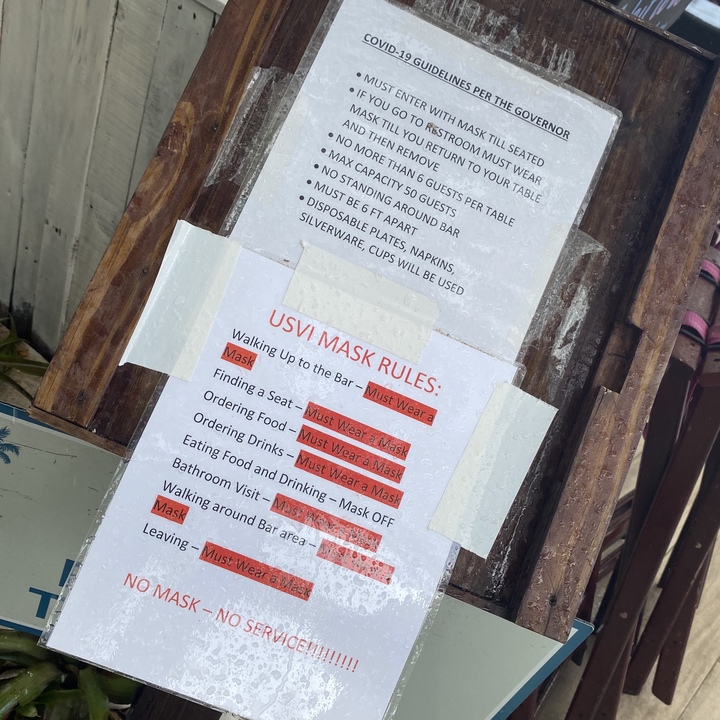 COVID-19 GUIDELINES PER THE GOVERNOR
• MUST ENTER WITH MASK TILL SEATED
• IF YOU GO TO RESTROOM MUST WEAR
MASK TILL YOU RETURN TO YOUR TABLE
AND THEN REMOVE
• NO MORE THAN 6 GUESTS PER TABLE
• MAX CAPACITY 50 GUESTS
• NO STANDING AROUND BAR
• MUST BE 6 FT APART
• DISPOSABLE PLATES, NAPKINS,
SILVERWARE, CUPS WILL BE USED
USVI MASK RULES:
Walking Up to the Bar – Must Wear a
Mask
Finding a Seat – Must Wear a Mask
Ordering Food – Must Wear a Mask
Ordering Drinks – Must Wear a Mask
Eating Food and Drinking – Mask OFF
Bathroom Visit – Must Wear a Mask
Walking around Bar area –
Mask
Leaving – Must Wear a Mask
NO MASK – NO SERVICE!!!!!!!!!